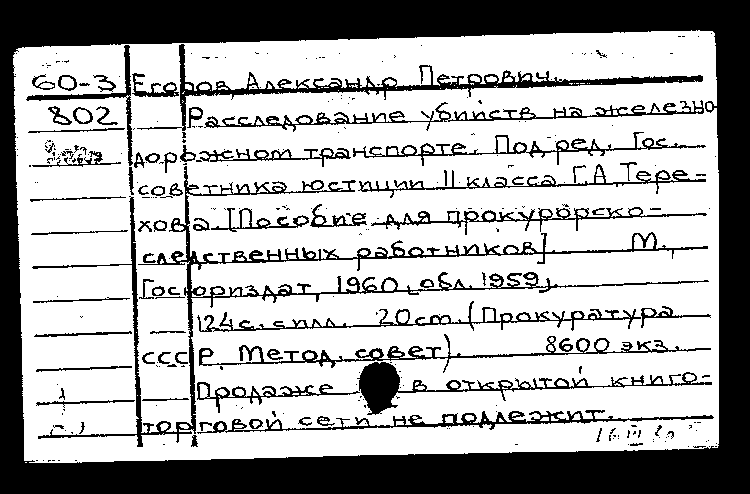 60-3 Егоров, Александр Петрович.
802 Расследование убийств на железно-
дорожном транспорте. Под ред. Гос.
советника юстиции II класса Г.А. Тере-
хова. [Пособие для прокурорско-
следственных работников] М.,
Госюриздат, 1960, обл. 1959,
124 с. с илл. 20 cm. (Прокуратура
СССР. Метод. совет). 8600 экз.
Продаже в открытой книго-
торговой сети не подлежит.